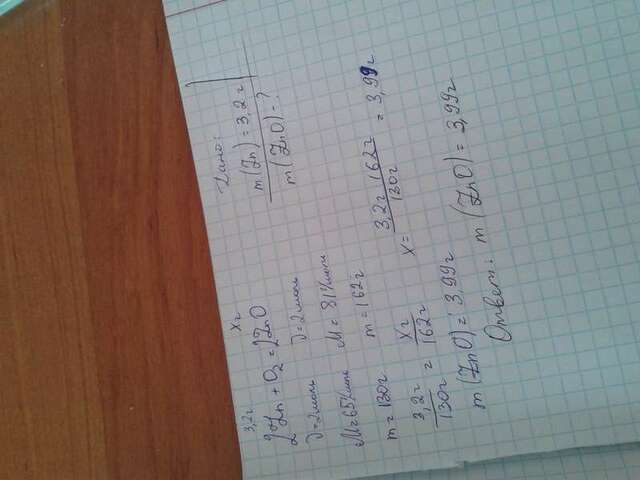 Дано:
m(Zn) = 3,2 г
m(ZnO) - ?
3,2г хг
2Zn + O2 = 2ZnO
ν=2моль ν=2моль
M=65г/моль M=81г/моль
m=130г m=162г
3,2г/130г = хг/162г x= 3,2г 162г/130г = 3,99г
m(ZnO)= 3,99г
Ответ: m(ZnO) = 3,99г